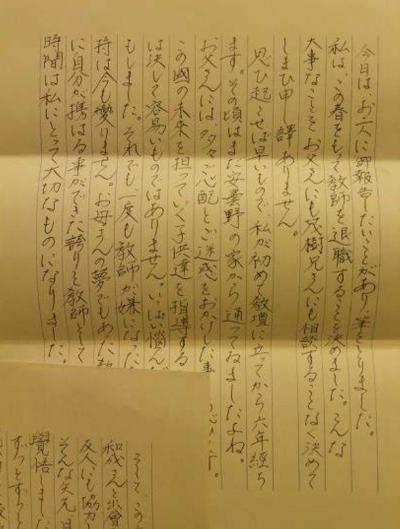 今日は、お二人に御報告したいことがあり筆をとりました。
私は、この春をもって教師を退職することを決めました。こんな
大事なことをお父さんにも茂樹兄さんにも相談することなく決めて
しまひ申し訳ありません。
思ひ起こせば早いもので、私が初めて教壇に立ってから六年経ち
ます。その頃はまだ安曇野の家から通ってゐましたよね。
お父さんには、多々ご心配とご迷惑をおかけした
この國の未来を担っていく子供達を指導する
は決して容易いものではありません。いっぱい悩んだ
もしました。それでも一度も教師が嫌になった
持は今も變りません。お母さんの夢でもあた教
に自分が携はる事ができた誇りと教師として
時間は私にとって大切なものになりました。
そして、この
和成さんと出會
反人にも協力
そんな矢先、日
覺悟しました
ずっとずっと